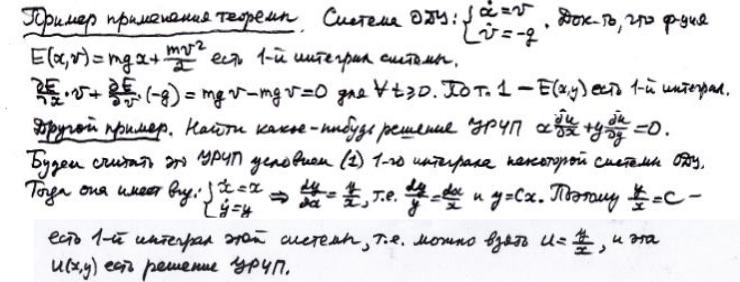 Пример применения теоремы. Система ОДУ: { ẋ = v, v̇ = -g . Док-ть, что ф-ция
E(x,v) = mgx + mv²/2 есть 1-й интеграл системы.
∂E/∂x · v + ∂E/∂v · (-g) = mgv - mgv = 0 для ∀ t ≥ 0. По т. 1 – E(x,y) есть 1-й интеграл.
Другой пример. Найти какое-нибудь решение УРЧП x ∂u/∂x + y ∂u/∂y = 0.
Будем считать это УРЧП условием (1) 1-го интеграла некоторой системы ОДУ.
Тогда она имеет вид: { ẋ = x, ẏ = y ⇒ dy/dx = y/x, т.е. dy/y = dx/x и y = Cx. Поэтому y/x = C –
есть 1-й интеграл этой системы, т.е. можно взять u = y/x, и эта
u(x,y) есть решение УРЧП.